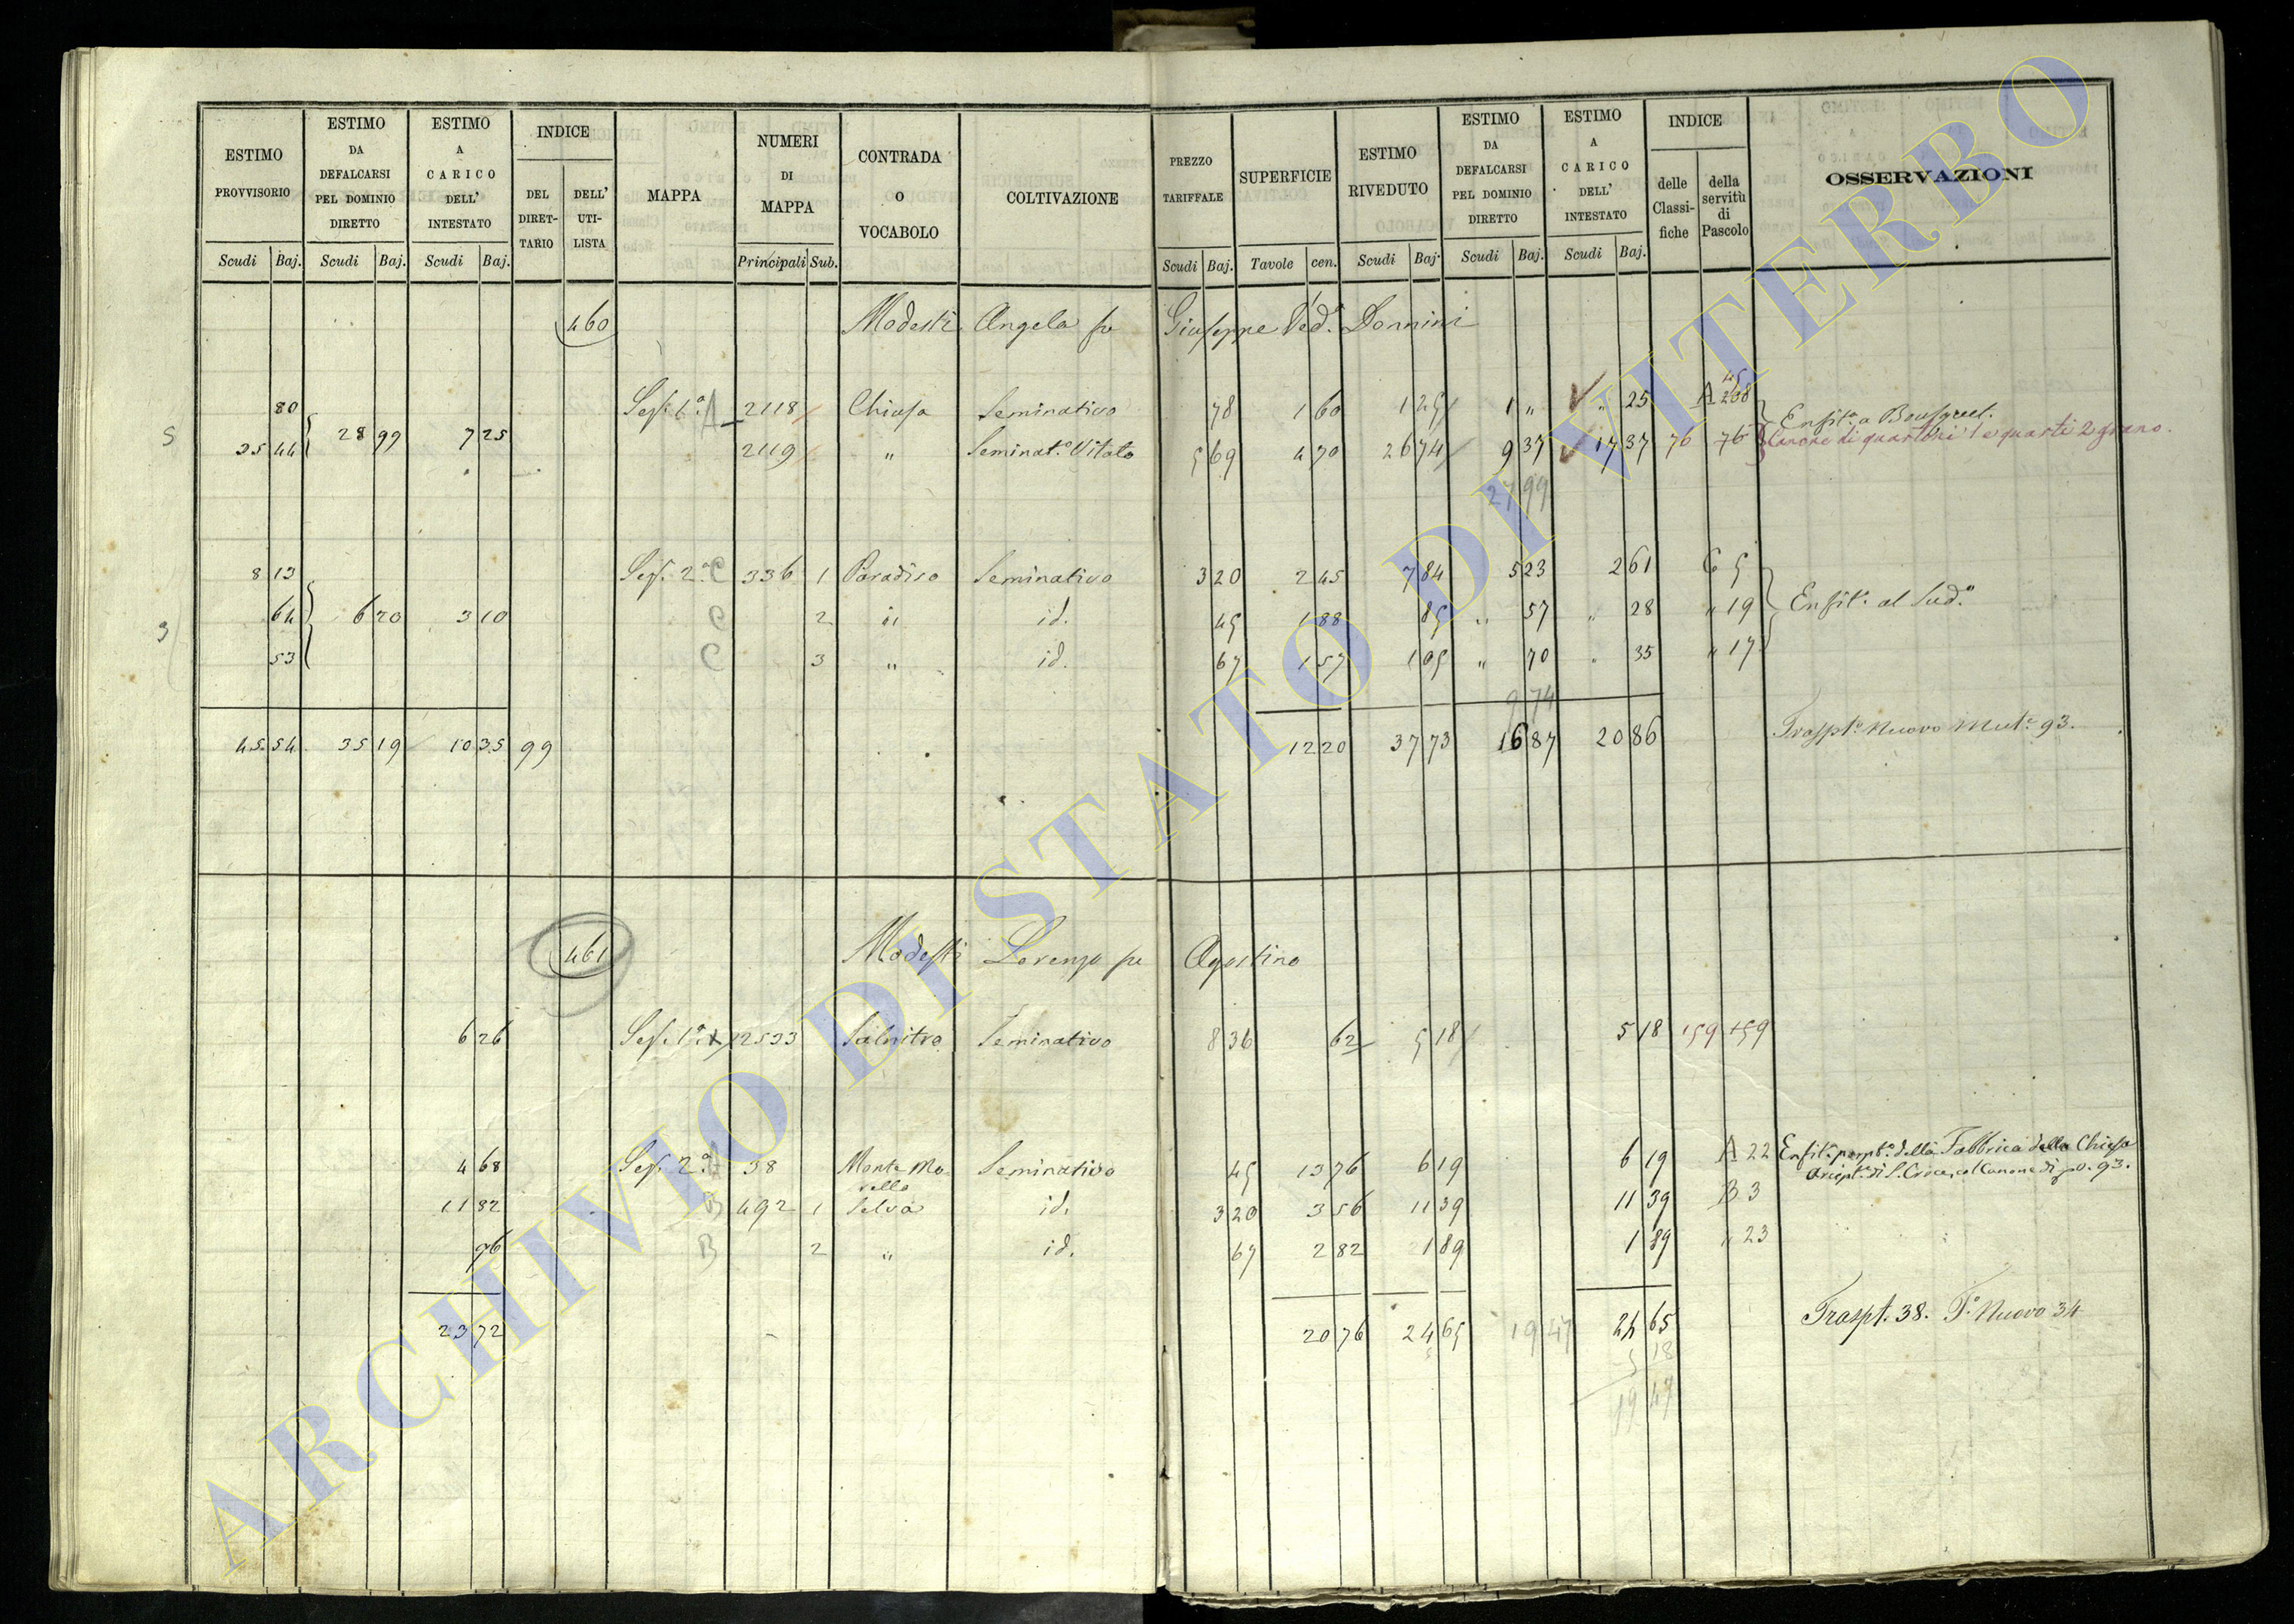 ESTIMO PROVVISORIO Scudi Baj.
ESTIMO DA DEFALCARSI PEL DOMINIO DIRETTO Scudi Baj.
ESTIMO A CARICO DELL' INTESTATO Scudi Baj.
INDICE DEL DIRET-TARIO DELL' UTI-LISTA
MAPPA
NUMERI DI MAPPA Principali Sub.
CONTRADA O VOCABOLO
COLTIVAZIONE
PREZZO TARIFFALE Scudi Baj.
SUPERFICIE Tavole cen.
ESTIMO RIVEDUTO Scudi Baj.
ESTIMO DA DEFALCARSI PEL DOMINIO DIRETTO Scudi Baj.
ESTIMO A CARICO DELL' INTESTATO Scudi Baj.
INDICE delle Classi-fiche della servitù di Pascolo
OSSERVAZIONI
460 Modesti Angela fu Giuseppe Ved.a Donnini
80 Sez. 1a A 2118 Chiusa Seminativo 78 1 60 1 25 1 " " 25 A 208
5 35 44 28 99 7 25 2119 " Seminat.o Vitato 5 69 4 70 26 74 9 37 17 37 76 76 Canone di quartoni 1 e quarti 2 grano.
27 99
8 13 Sez. 2a C 336 1 Paradiso Seminativo 3 20 2 45 7 84 5 23 2 61 C 5
3 64 6 20 3 10 C 2 " id. 45 1 88 85 " 57 " 28 " 19 Enfit. al Sud.o
53 C 3 " id. 67 1 57 1 05 " 70 " 35 " 17
9 74
45 54 35 19 10 35 99 12 20 37 73 16 87 20 86 Traspt.o Nuovo Mut.e 93.
461 Modesti Lorenzo fu Agostino
6 26 Sez. 1a 2533 Salnitro Seminativo 8 36 62 5 18 5 18 159 159
4 68 Sez. 2a A 38 Monte Mo-rello Seminativo 45 13 76 6 19 6 19 A 22 Enfit. perpt.o della Fabbrica della Chiesa
Ariept. di S. Croce, col Canone di 93.
11 82 B 492 1 Selva id. 3 20 3 56 11 39 11 39 B 3
96 B 2 " id. 67 2 82 1 89 1 89 " 23
23 72 20 76 24 65 19 47 24 65 Traspt. 38. T.o Nuovo 34
5 18
19 47
ARCHIVIO DI STATO DI VITERBO